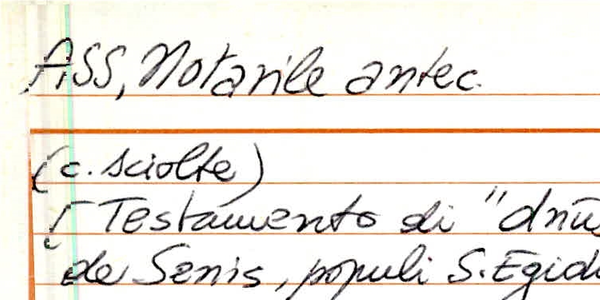 ASS, Notarile antec.
(c. sciolte)
[ Testamento di "dnūs
de Senis, populi S. Egidi